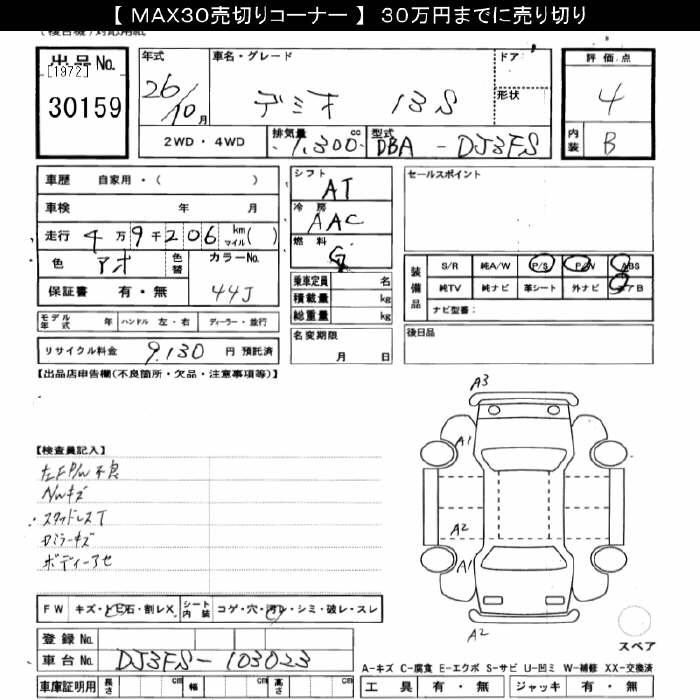 【 MAX30売切りコーナー 】 30万円までに売り切り
出品No.
[1972]
30159
年式
26/10月
車名・グレード
デミオ 13S
ドア
形状
評価点
4
内装
B
2WD・4WD
排気量
1,300cc
型式
DBA - DJ3FS
車歴 自家用・( )
車検 年 月
走行 4万9千206 km マイル( )
色 アオ
色替
カラーNo.
44J
保証書 有・無
モデル年式 年 ハンドル 左・右 ディーラー・並行
リサイクル料金 9,130 円 預託済
シフト
AT
冷房
AAC
燃料
G
乗車定員 名
積載量 kg
総重量 kg
名変期限
月 日
セールスポイント
装備品
S/R 純A/W P/S P/W ABS
純TV 純ナビ 革シート 外ナビ エアB
ナビ型番:
後日品
【出品店申告欄(不良箇所・欠品・注意事項等)】
【検査員記入】
左F P/W 不良
スタッドレスT
Dミラーキズ
ボディーアセ
A3
A1
A2
A1
A2
スペア
FW キズ・トビ石・割レX
シート内装 コゲ・穴・汚レ・シミ・破レ・スレ
登録No.
車台No. DJ3FS-103023
車庫証明用 長さ cm 幅 cm 高さ cm
A-キズ C-腐食 E-エクボ S-サビ U-凹ミ W-補修 XX-交換済
工具 有・無 ジャッキ 有・無